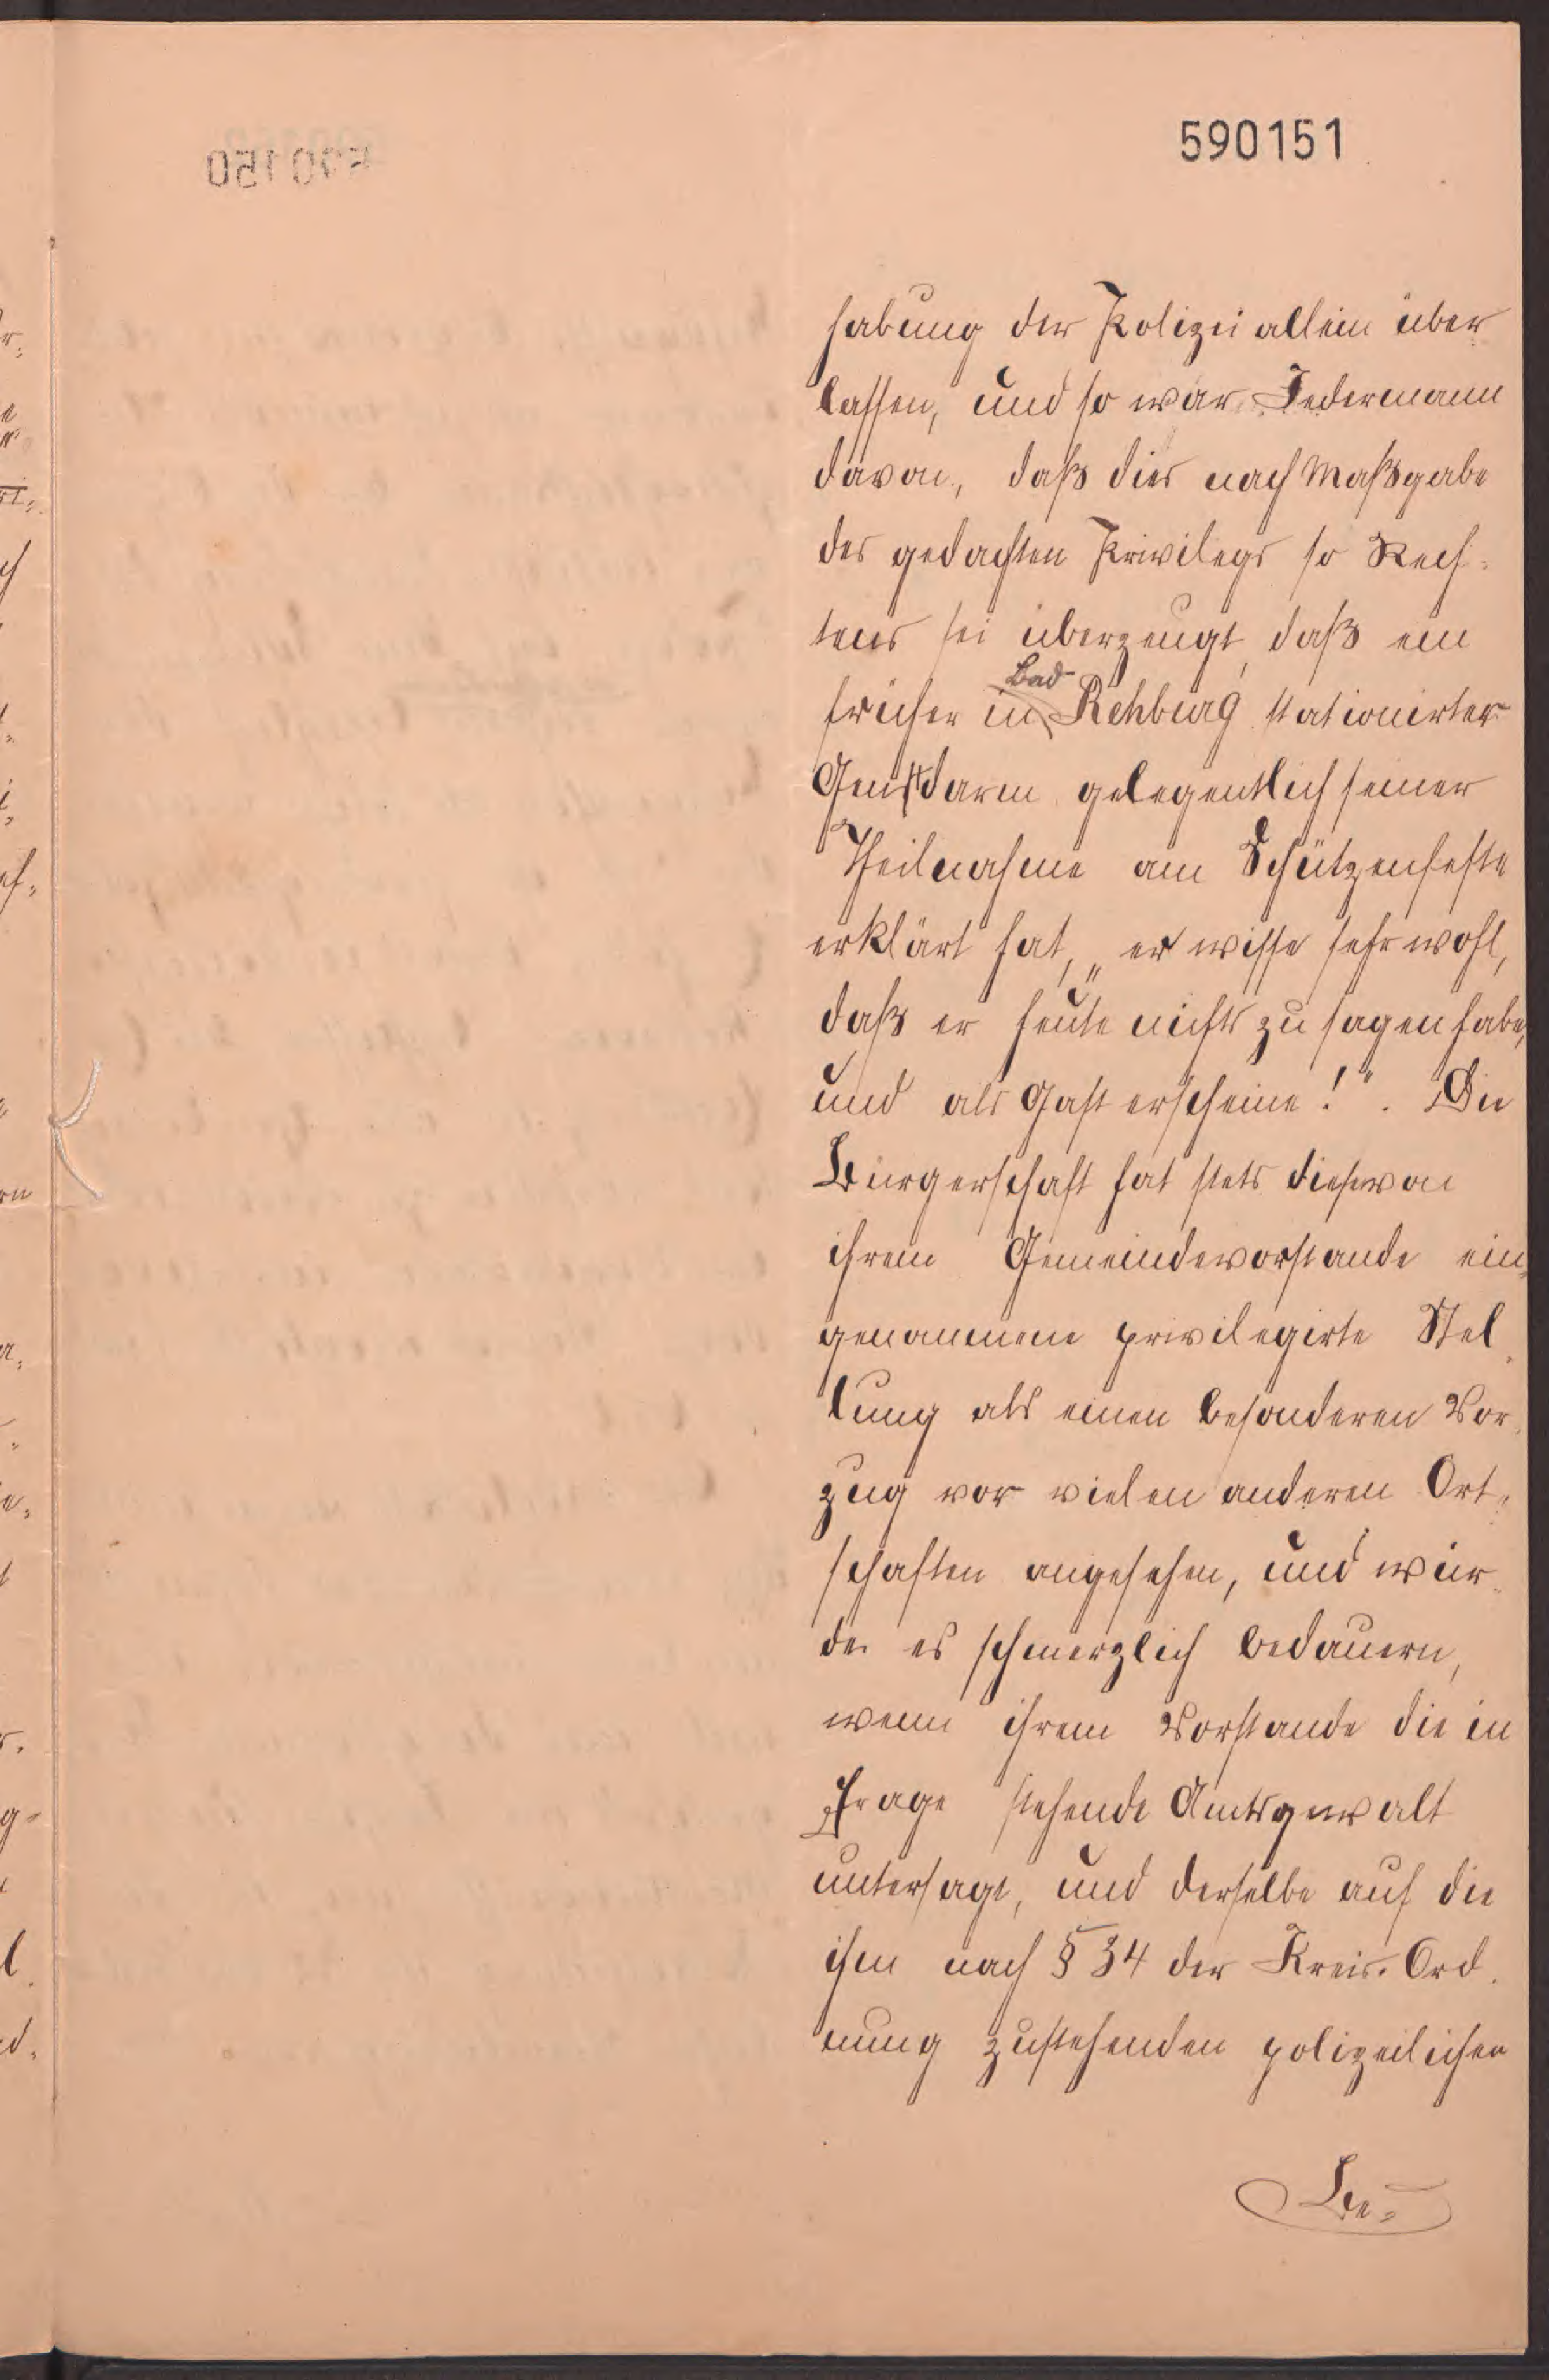 590151
habung der Polizei allein über
lassen, und so war Jedermann
davon, daß dies nach Maßgabe
des gedachten Privilegs so Rech-
tens sei überzeugt, daß ein
früher in Bad Rehburg stationirter
Gensdarm gelegentlich seiner
Theilnahme am Schützenfeste
erklärt hat, „er wisse sehr wohl,
daß er heute nichts zu sagen habe,
und als Gast erscheine!“. Die
Bürgerschaft hat stets diese von
ihrem Gemeindevorstande ein-
genommene privilegirte Stel-
lung als einen besonderen Vor-
zug vor vielen anderen Ort-
schaften angesehen, und wür-
de es schmerzlich bedauern,
wenn ihrem Vorstande die in
Frage stehende Amtsgewalt
untersagt, und derselbe auf die
ihm nach § 34 der Kreis-Ord-
nung zustehenden polizeilichen
Be-